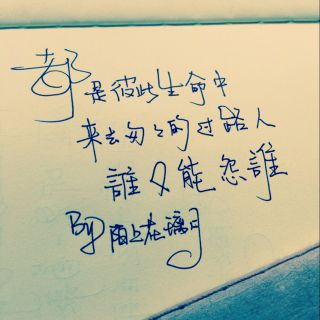 都是彼此生命中
来去匆匆的过路人
誰又能怨誰
By陌上在璃月